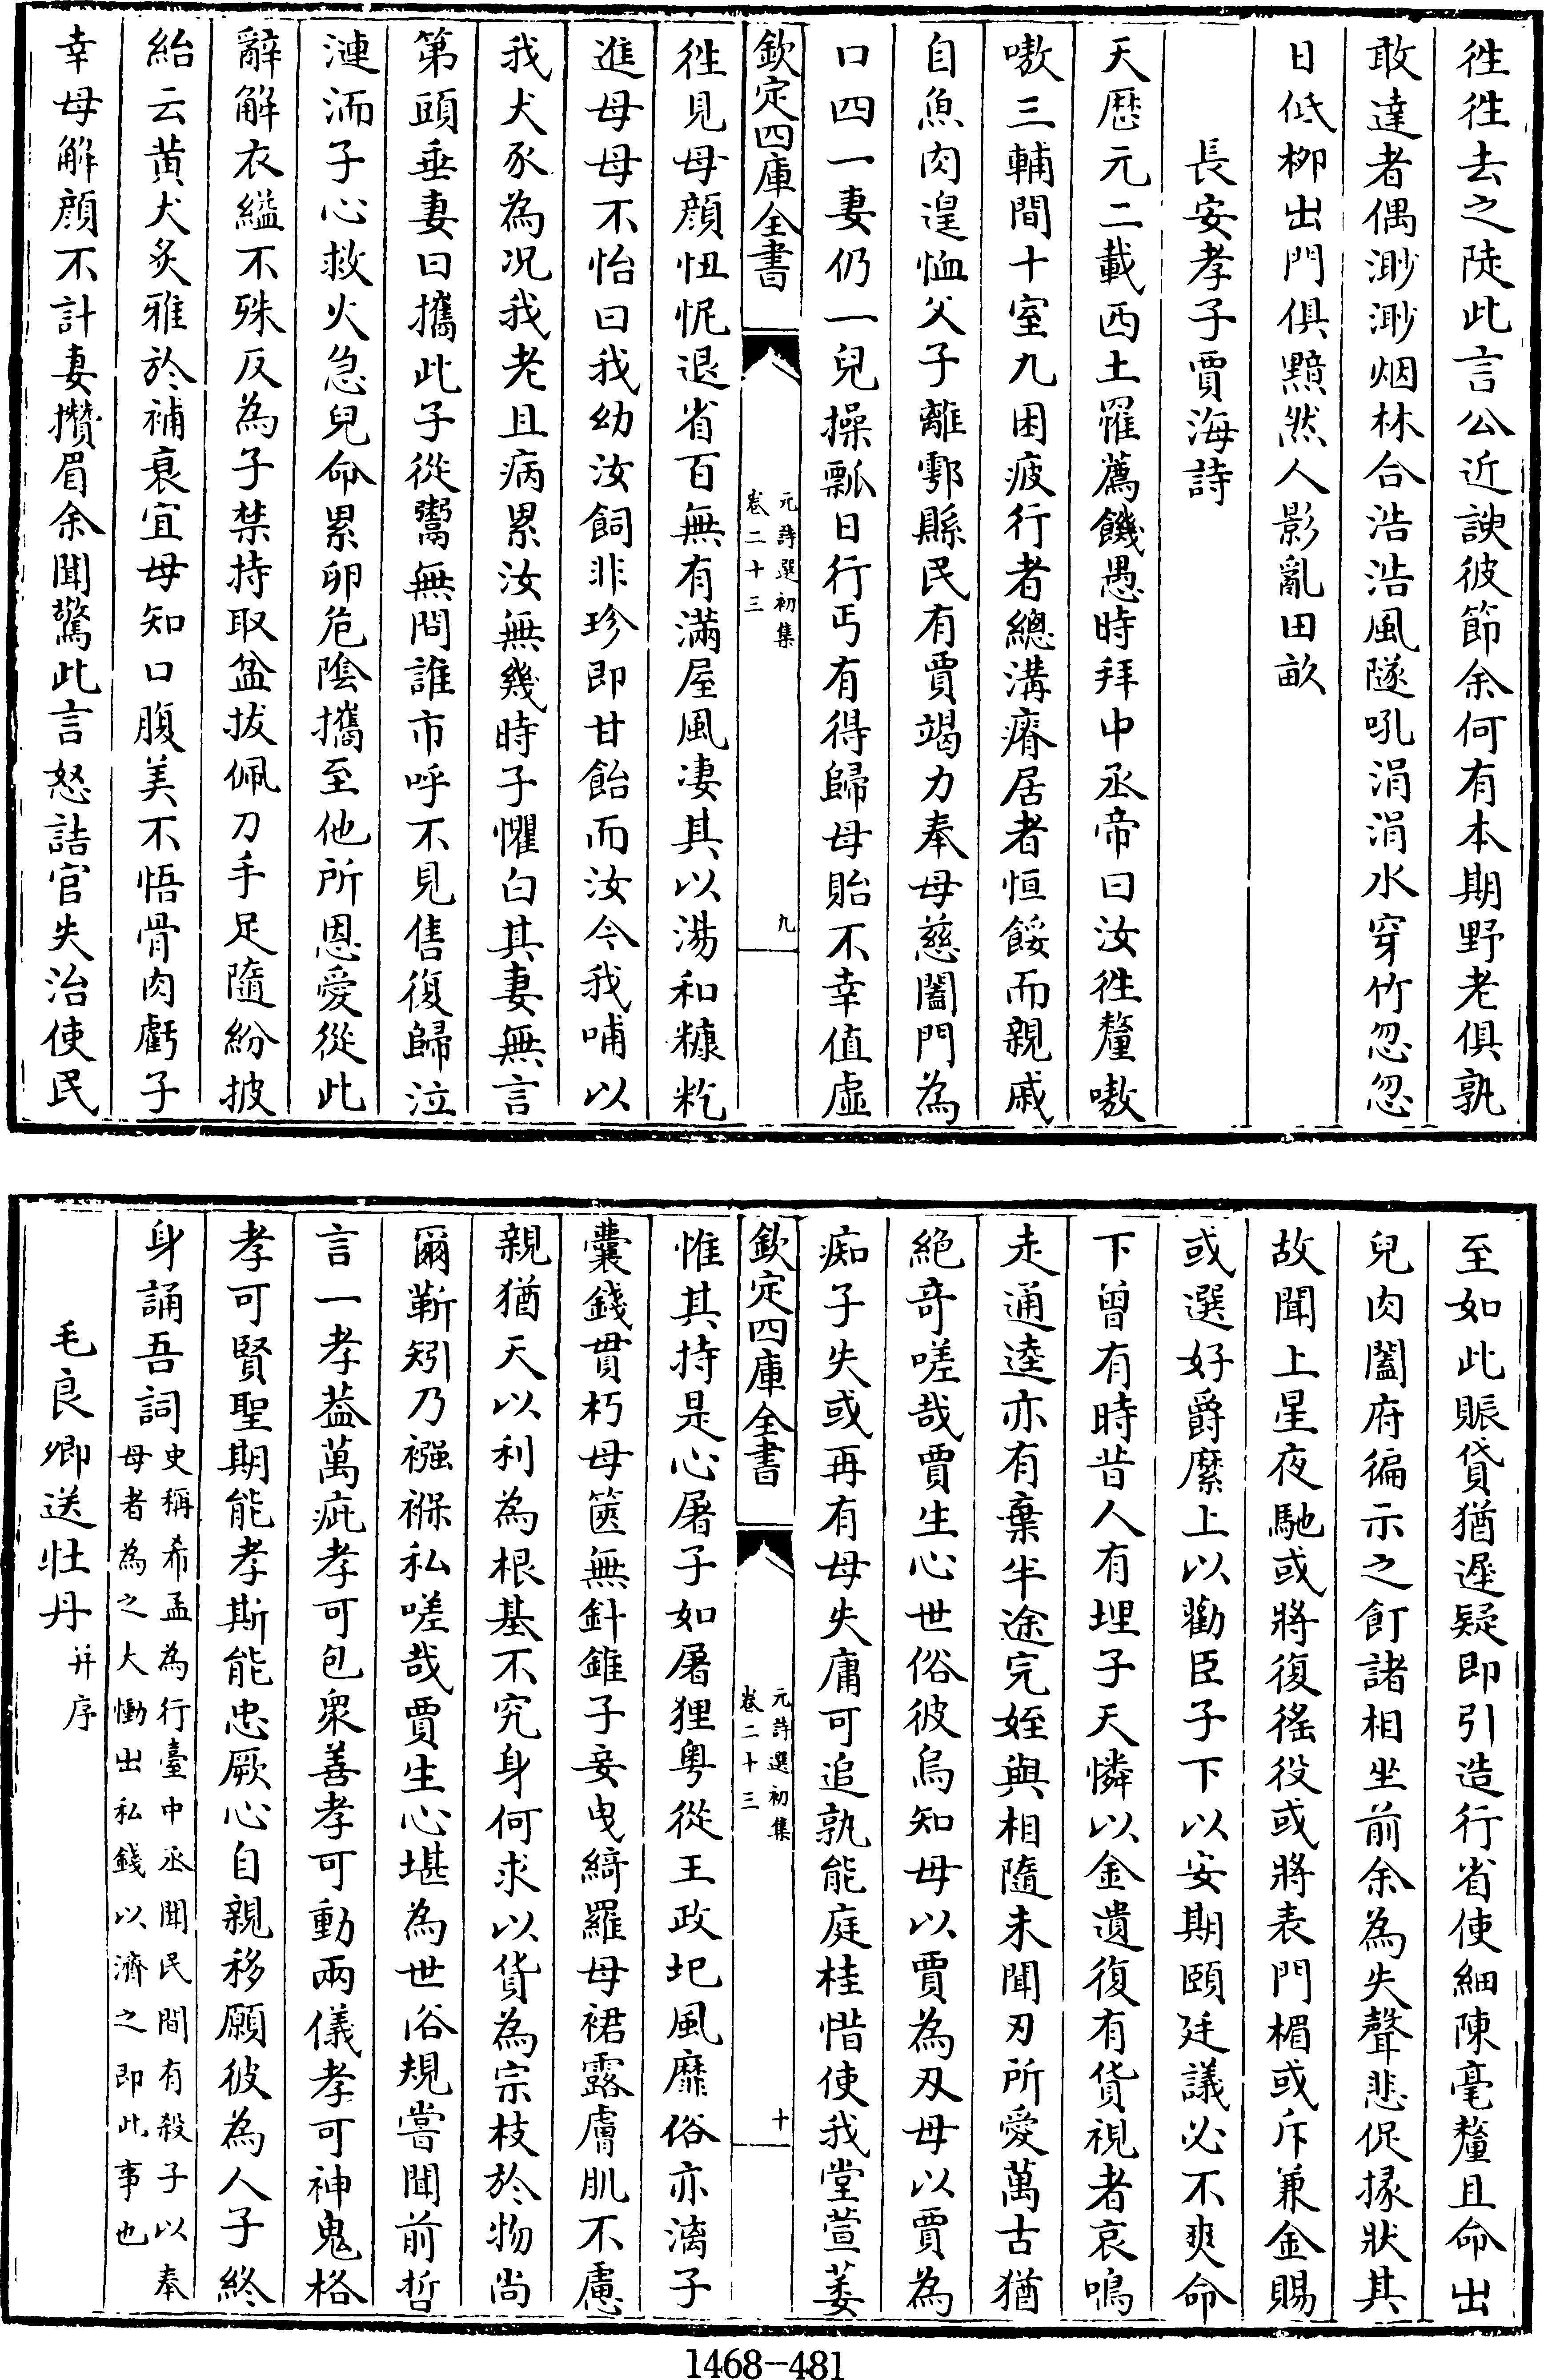 徃徃去之陡此言公近諛彼節余何有本期野老俱孰
敢達者偶渺渺烟林合浩浩風隧吼涓涓水穿竹忽忽
日低柳出門俱黯然人影亂田畝
長安孝子賈海詩
天厯元二載西土罹薦饑愚時拜中丞帝曰汝徃釐嗷
嗷三輔間十室九困疲行者總溝瘠居者恒餒而親戚
自魚肉遑恤父子離鄠縣民有賈竭力奉母慈闔門為
口四一妻仍一兒操瓢日行丐有得歸母貽不幸值虛
欽定四庫全書
元詩選初集
卷二十三
九
徃見母顔忸怩退省百無有滿屋風凄其以湯和糠籺
進母母不怡曰我幼汝飼非珍即甘飴而汝今我哺以
我犬豕為况我老且病累汝無幾時子懼白其妻無言
第頭垂妻曰攜此子從鬻無問誰市呼不見售復歸泣
漣洏子心救火急兒命累卵危陰攜至他所恩愛從此
辭解衣縊不殊反為子禁持取盆拔佩刀手足隨紛披
紿云黄犬炙雅於補衰宜母知口腹美不悟骨肉虧子
幸母解顔不計妻攢眉余聞驚此言怒詰官失治使民
至如此賑貸猶遲疑即引造行省使細陳毫釐且命出
兒肉闔府徧示之飣諸相坐前余為失聲悲促掾狀其
故聞上星夜馳或將復徭役或將表門楣或斥兼金賜
或選好爵縻上以勸臣子下以安期頤廷議必不爽命
下曾有時昔人有埋子天憐以金遺復有貨視者哀鳴
走通逵亦有棄半途完姪與相隨未聞刃所愛萬古猶
絶奇嗟哉賈生心世俗彼烏知母以賈為刄母以賈為
痴子失或再有母失庸可追孰能庭桂惜使我堂萱萎
欽定四庫全書
元詩選初集
卷二十三
十
惟其持是心屠子如屠狸粤從王政圮風靡俗亦漓子
囊錢貫朽母篋無針錐子妾曳綺羅母裙露膚肌不慮
親猶天以利為根基不究身何求以貨為宗枝於物尚
爾靳矧乃襁褓私嗟哉賈生心堪為世俗規嘗聞前哲
言一孝葢萬疵孝可包衆善孝可動兩儀孝可神鬼格
孝可賢聖期能孝斯能忠厥心自親移願彼為人子終
身誦吾詞史稱希孟為行臺中丞聞民間有殺子以奉
母者為之大慟出私錢以濟之即此事也
毛良卿送牡丹并序
1468-481